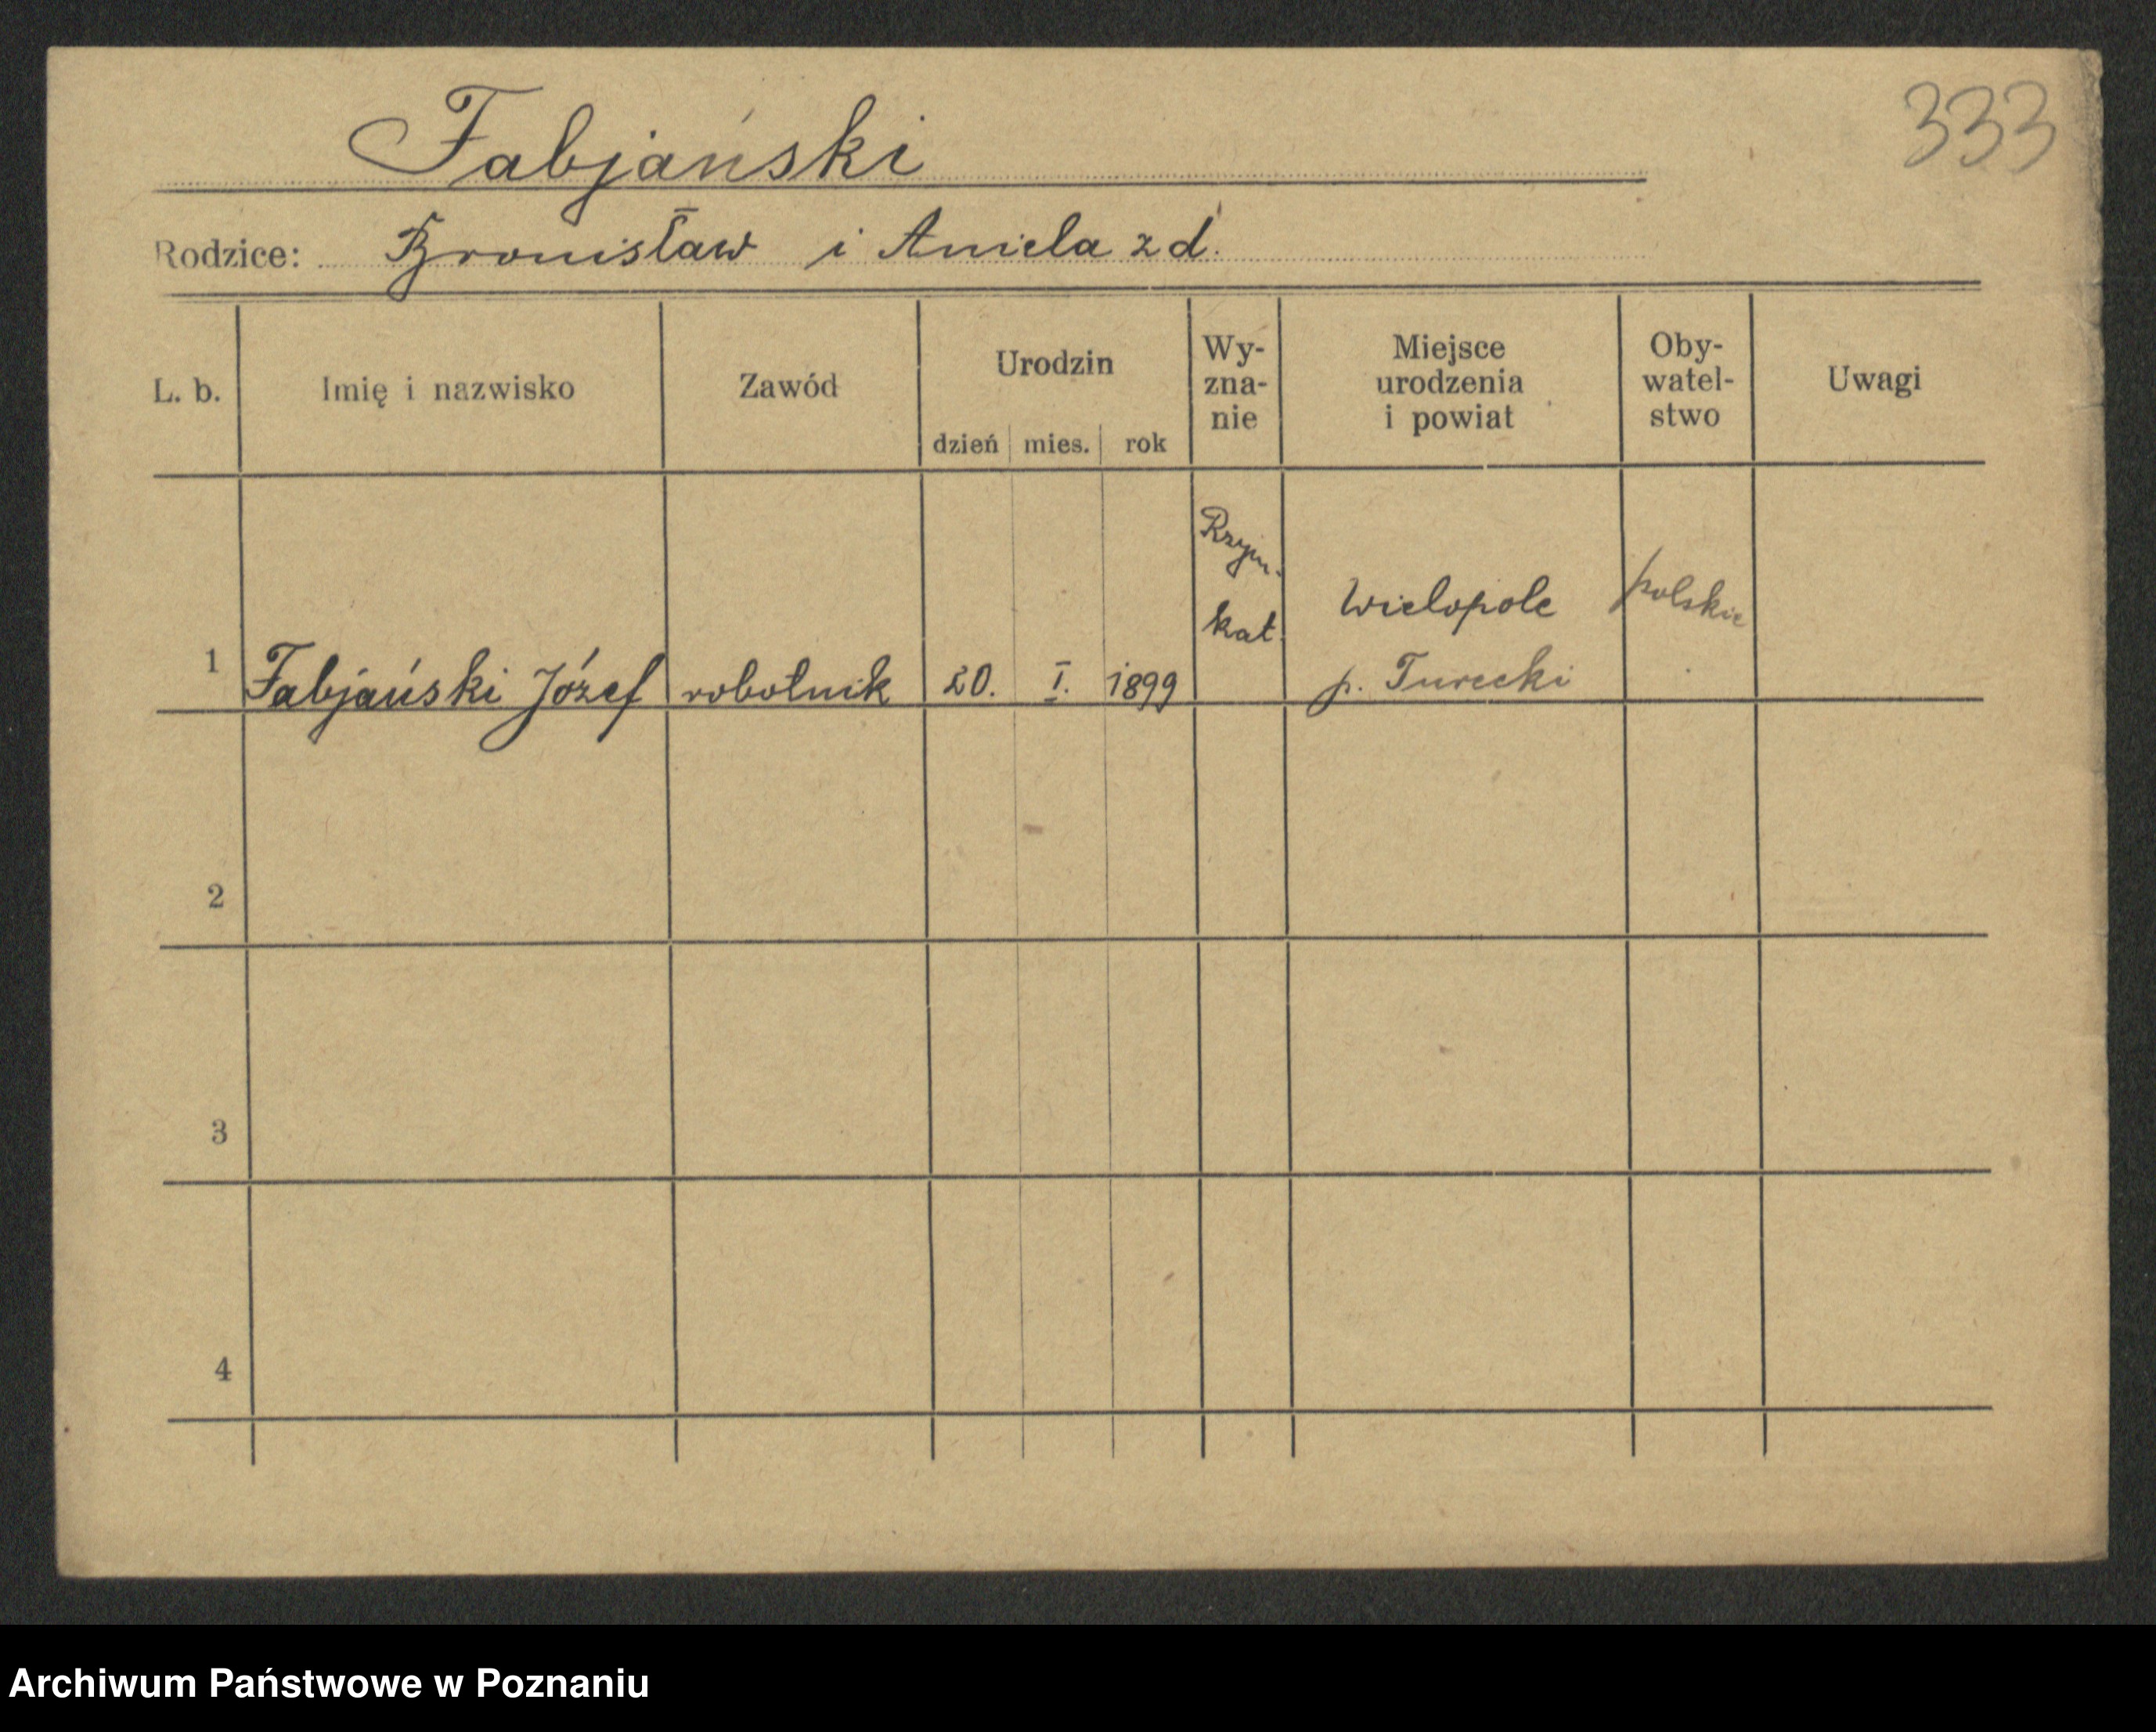 333
Fabjański
Rodzice: Bronisław i Aniela z d.
L. b. Imię i nazwisko Zawód Urodzin dzień mies. rok Wy-
zna-
nie Miejsce
urodzenia
i powiat Oby-
watel-
stwo Uwagi
1 Fabjański Józef robotnik 20. I. 1899 Rzym.
kat. Wielopole
p. Turecki polskie
2
3
4
Archiwum Państwowe w Poznaniu